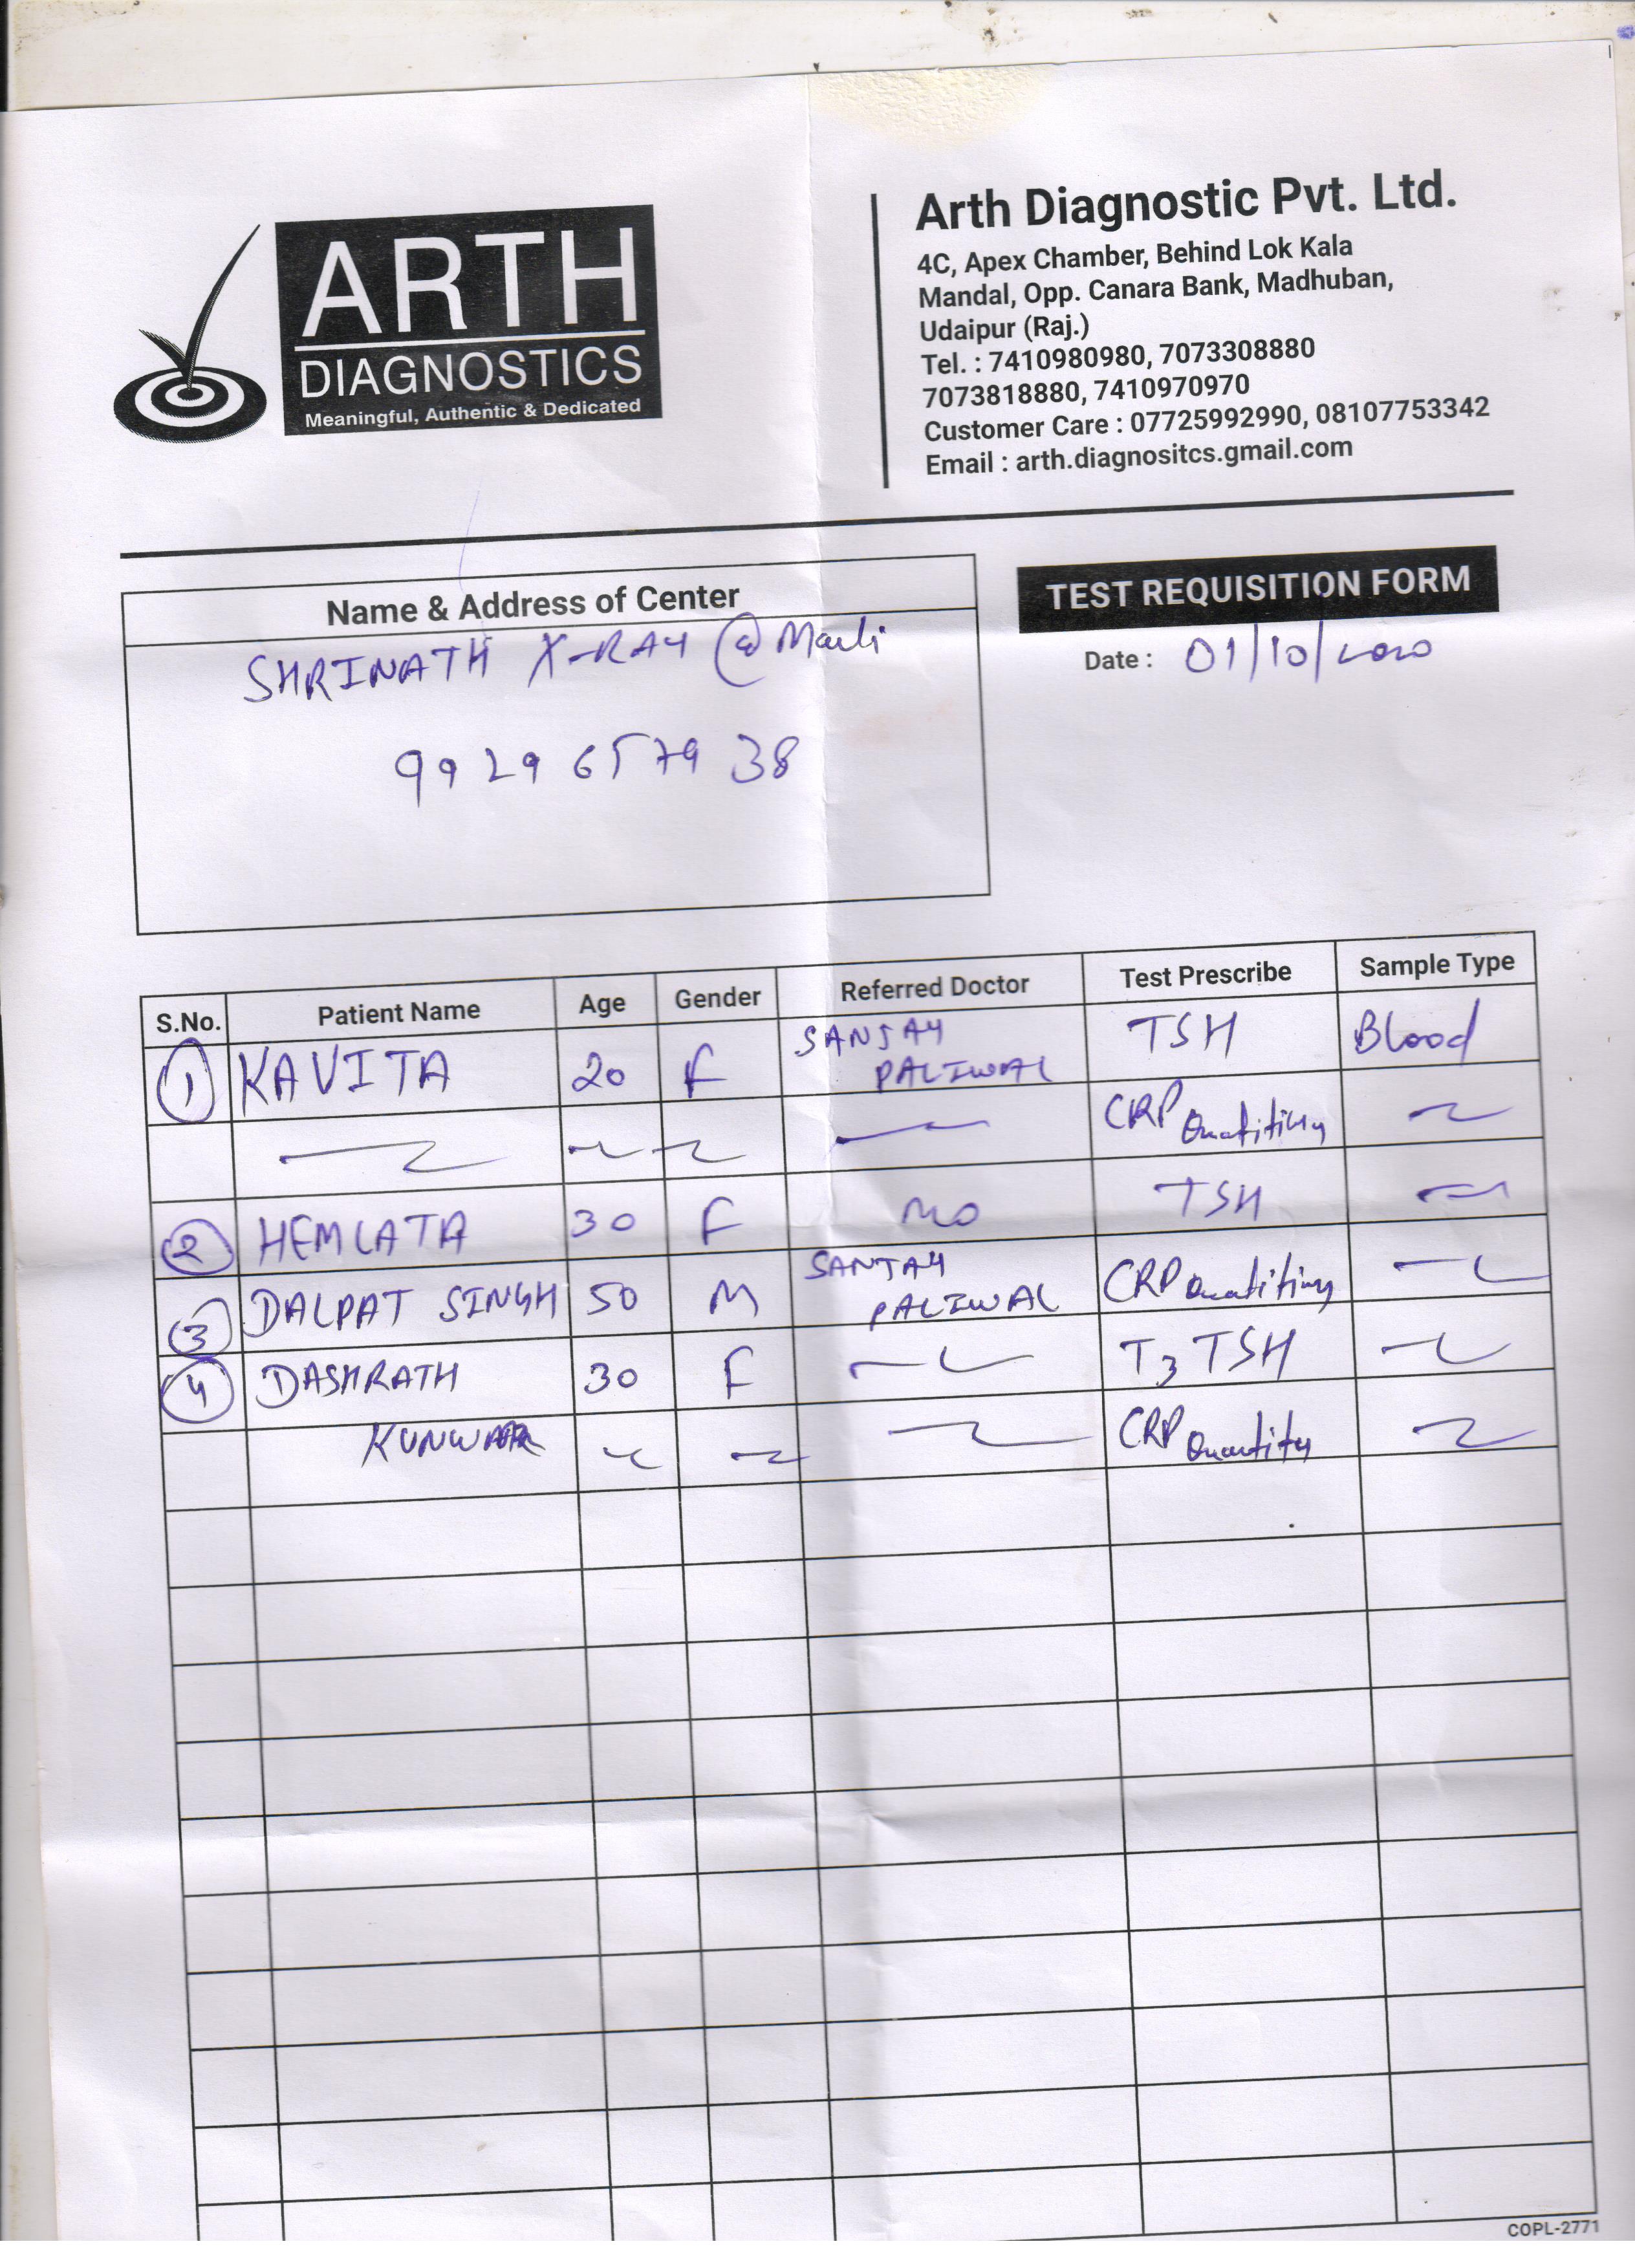 ARTH
DIAGNOSTICS
Meaningful, Authentic & Dedicated
Arth Diagnostic Pvt. Ltd.
4C, Apex Chamber, Behind Lok Kala
Mandal, Opp. Canara Bank, Madhuban,
Udaipur (Raj.)
Tel. : 7410980980, 7073308880
7073818880, 7410970970
Customer Care : 07725992990, 08107753342
Email : arth.diagnositcs.gmail.com
Name & Address of Center
SHRINATH X-RAY @
99296579 38
TEST REQUISITION FORM
Date : 01/10/2020
S.No. Patient Name Age Gender Referred Doctor Test Prescribe Sample Type
1 KAVITA 20 F SANJAY PALIWAL TSH Blood
CRP
2 HEMLATA 30 F TSH
3 DALPAT SINGH 50 M SANJAY PALIWAL CRP
4 DASHRATH 30 F T3 TSH
KUNWAR CRP Quantity
COPL-2771